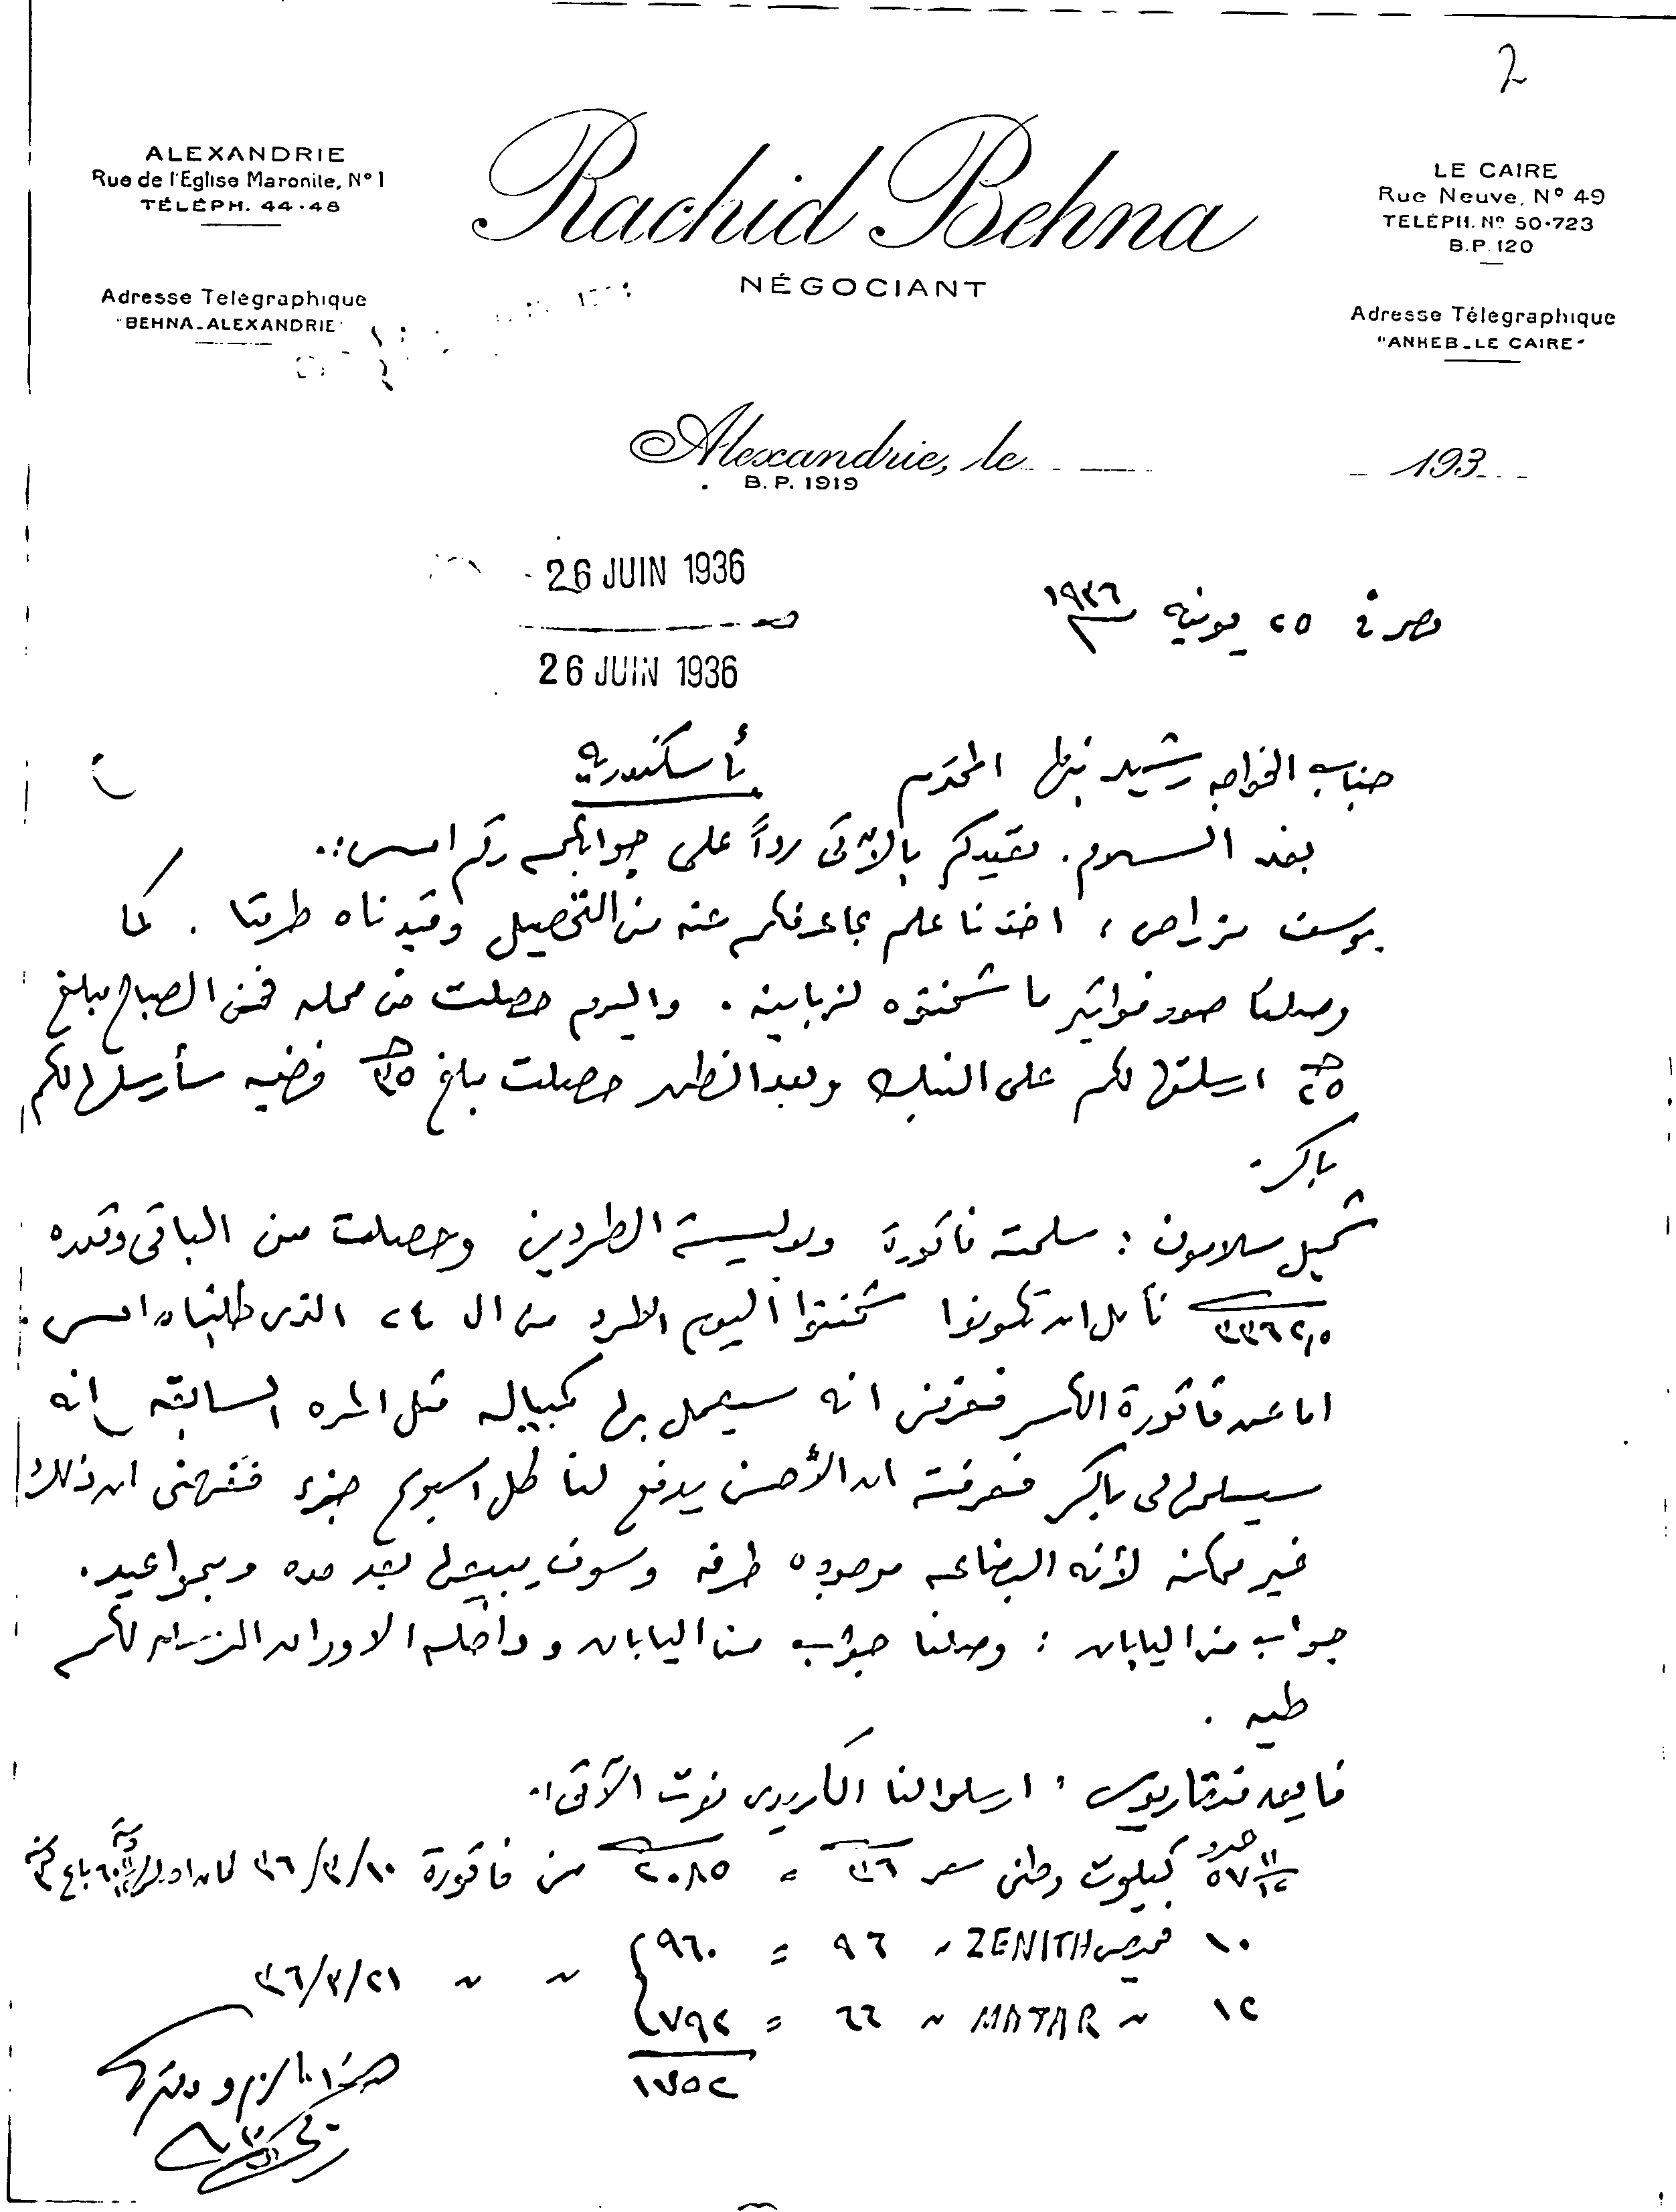 2
ALEXANDRIE
Rue de l'Eglise Maronite, N° 1
TÉLÉPH. 44-48
Adresse Télégraphique
"BEHNA-ALEXANDRIE"
Rachid Behna
NÉGOCIANT
LE CAIRE
Rue Neuve, N° 49
TÉLÉPH. N° 50-723
B.P. 120
Adresse Télégraphique
"ANHEB-LE CAIRE"
Alexandrie, le 193
B. P. 1919
26 JUIN 1936
26 JUIN 1936
مصر في ٢٥ يونيه سنة ١٩٣٦
جناب الخواجه رشيد بهنا المحترم بأسكندرية
بعد السلام. نفيدكم بالآتى رداً على جوابكم رقم امس:.
يوسف مزراحى، اخذنا علم بما عرفتم عنه من التحصيل وقيدناه طرفنا. كما
وصلنا صور فواتير ما شحنتوه لزباينه. واليوم حصلت من محله فمن الصباح مبلغ
٢٥ ارسلتها لكم على البنك وبعد الظهر حصلت مبلغ ٣٥ فضيه سأرسلها لكم
باكر.
شميل سلامون: سلمته فاتورة وبوليسة الطردين وحصلت من الباقى وقدره
٣٣٦٢٫٥ نأمل ان تكونوا شحنتوا اليوم الطرد من ال ٢٤ الذى طلبناه امس.
اما عن فاتورة الأمس فعرفنى انه سيعمل بها كمبياله مثل المره السابقه انه
سيسلمها لى باكر فعرفته ان الأحسن يدفع لنا كل اسبوع جزء ففهمنى ان ذلك
غير ممكنه لأنه البضاعه موجوده طرفه وسوف يبيعها بعد مده وبمواعيد.
جواب من اليابان: وصلنا جواب من اليابان وداخله الاوراق المرسله لكم
طيه.
ارسلوا لنا الكريدى نوت الآتى:.
٥٧ ١١/١٢ كيلوت وطنى سعر ٣٦ = ٢٠٨٥ من فاتورة ٣٦/٣/١٠
١٠ قميص ZENITH " ٩٦ = ٩٦٠
١٢ " MATAR " ٦٦ = ٧٩٢ " " ٣٦/٣/٢١
١٧٥٢
هذا ما لزم ودمتم